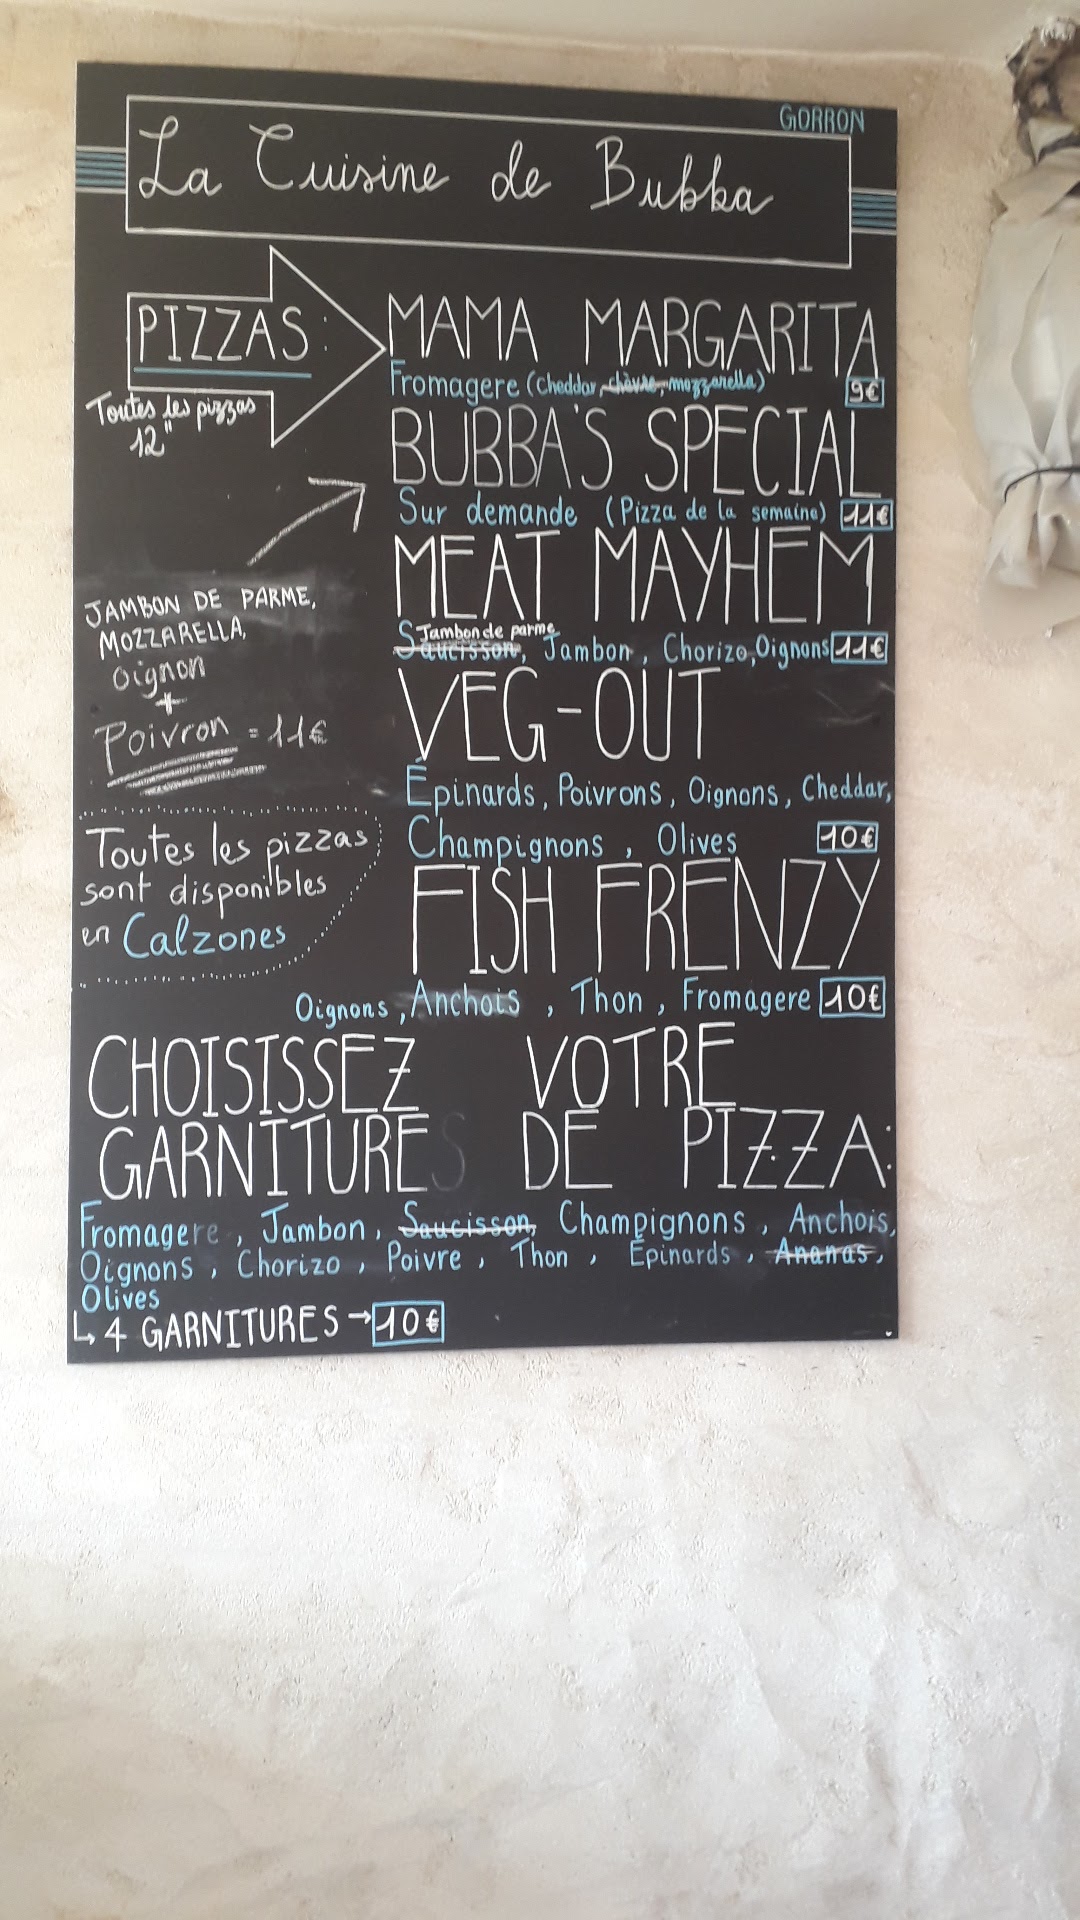 GORRON
La Cuisine de Bubba
PIZZAS:
Toutes les pizzas
12"
MAMA MARGARITA
Fromagere (Cheddar, chèvre, mozzarella)
9€
BUBBA'S SPECIAL
Sur demande (Pizza de la semaine) 11€
JAMBON DE PARME,
MOZZARELLA,
Oignon
+
Poivron = 11€
MEAT MAYHEM
Jambon de parme
Saucisson, Jambon, Chorizo, Oignons 11€
VEG-OUT
Épinards, Poivrons, Oignons, Cheddar,
Champignons, Olives 10€
Toutes les pizzas
sont disponibles
en Calzones
FISH FRENZY
Oignons, Anchois, Thon, Fromagere 10€
CHOISISSEZ VOTRE
GARNITURES DE PIZZA:
Fromagere, Jambon, Saucisson, Champignons, Anchois,
Oignons, Chorizo, Poivre, Thon, Épinards, Ananas,
Olives
↳ 4 GARNITURES → 10€